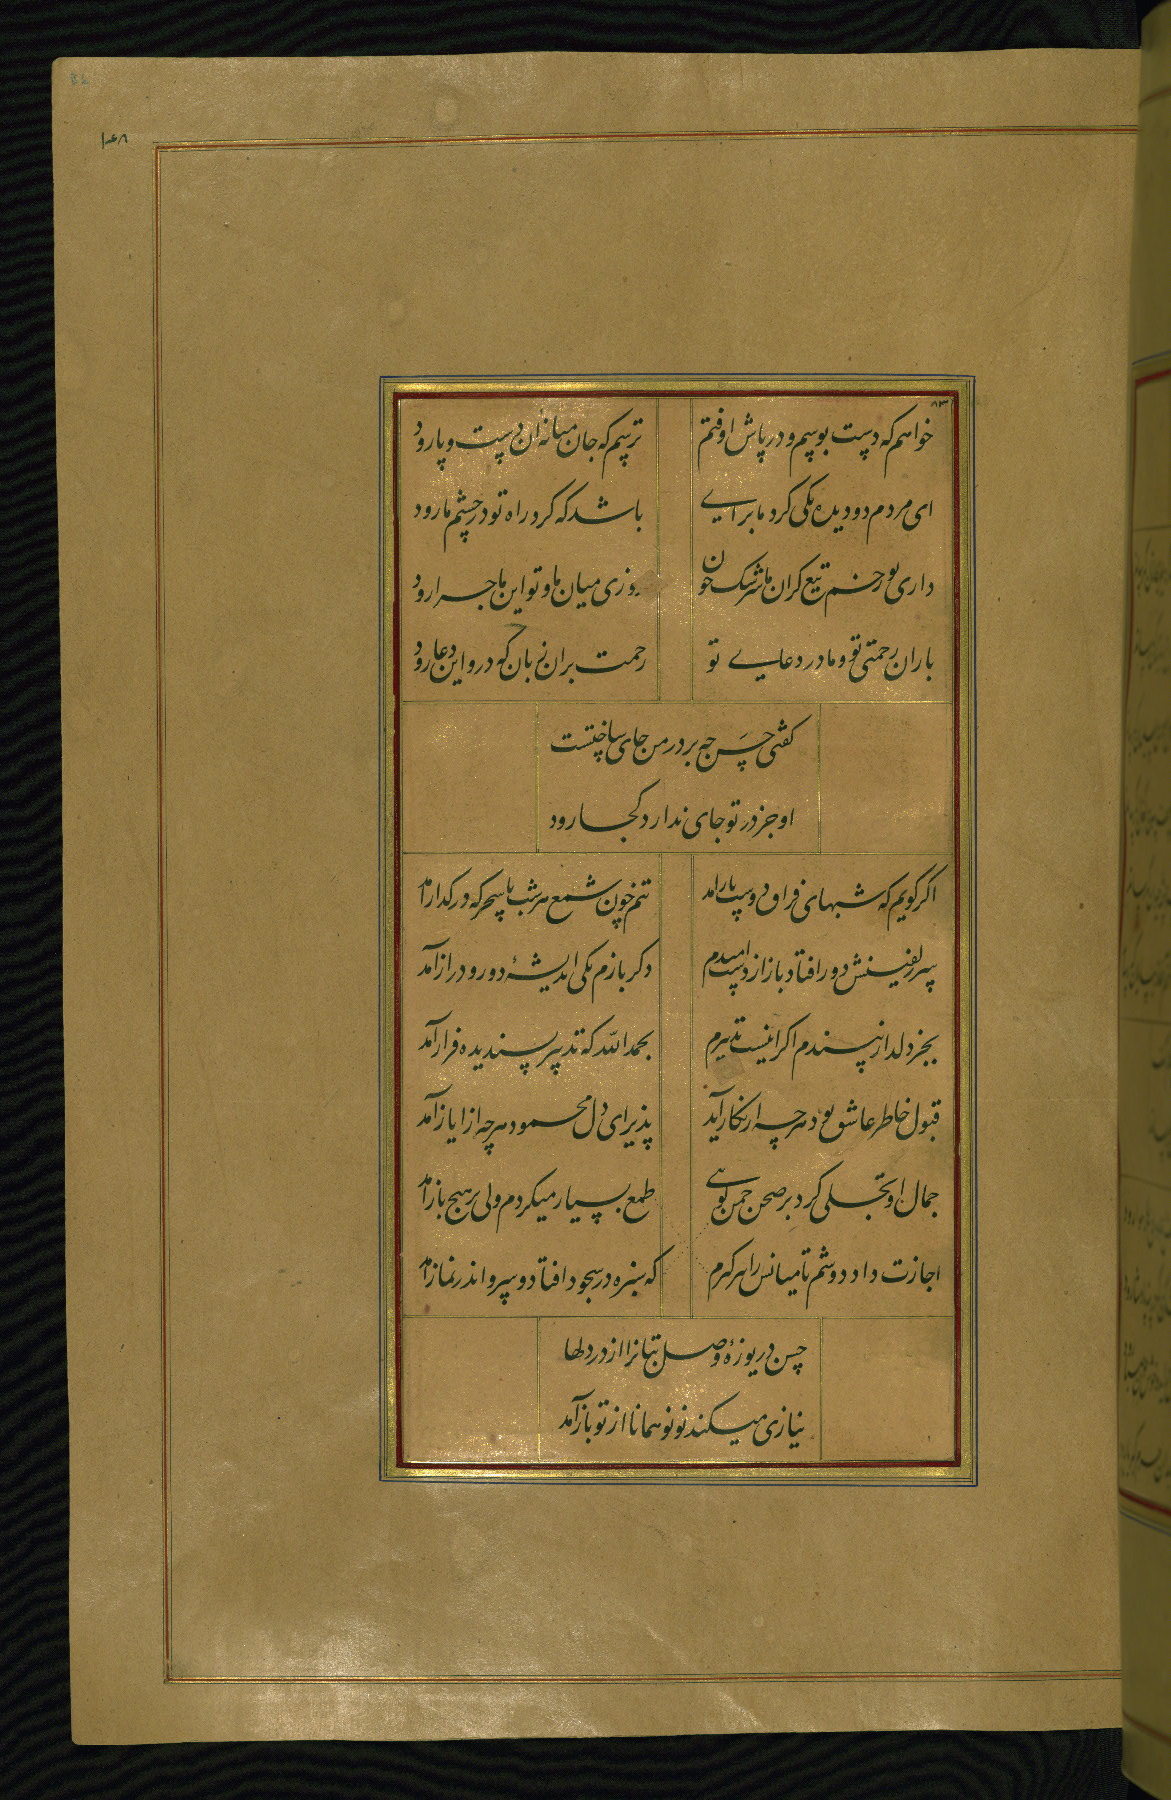 ۱۰۶۸
۸۳
خواهم که دست بوسم و در پاش اوفتم
ترسم که جان میانهٔ آن دست و پا رود
ای مردم دو دیده یکی گرد ما برای
باشد که گرد راه تو در چشم ما رود
داری تو رخم تیغ گران ما سرشک خون
روزی میان ما و تو این ماجرا رود
باران رحمتی تو و ما در دعای تو
رحمت بران زبان که درو این دعا رود
گفتی حسن چه بر در من جای ساختست
او جز در تو جای ندارد کجا رود
اگر گویم که شبهای فراق دوست باز آمد
تنم چون شمع هر شب تا سحرگه در گداز آمد
سر زلفینش دور افتاد باز از دست امیدم
دگر بازم یکی اندیشهٔ دور و دراز آمد
بجز دلدار نپسندم اگر اینست تدبیرم
بحمدالله که تدبیر پسندیده فراز آمد
قبول خاطر عاشق بود هرچه از نگار آید
پذیرای دل محمود هرچه از ایاز آمد
جمال او تجلی کرد بر صحن چمن گویی
طمع بسیار میکردم ولی بر هیچ باز آمد
اجازت داد دوشم تا میانش را بر گیرم
که سبزه در سجود افتاد و سرو اندر نماز آمد
حسن دریوزهٔ وصل بتانرا از در دلها
نیازی میکند نو نو همانا از تو باز آمد